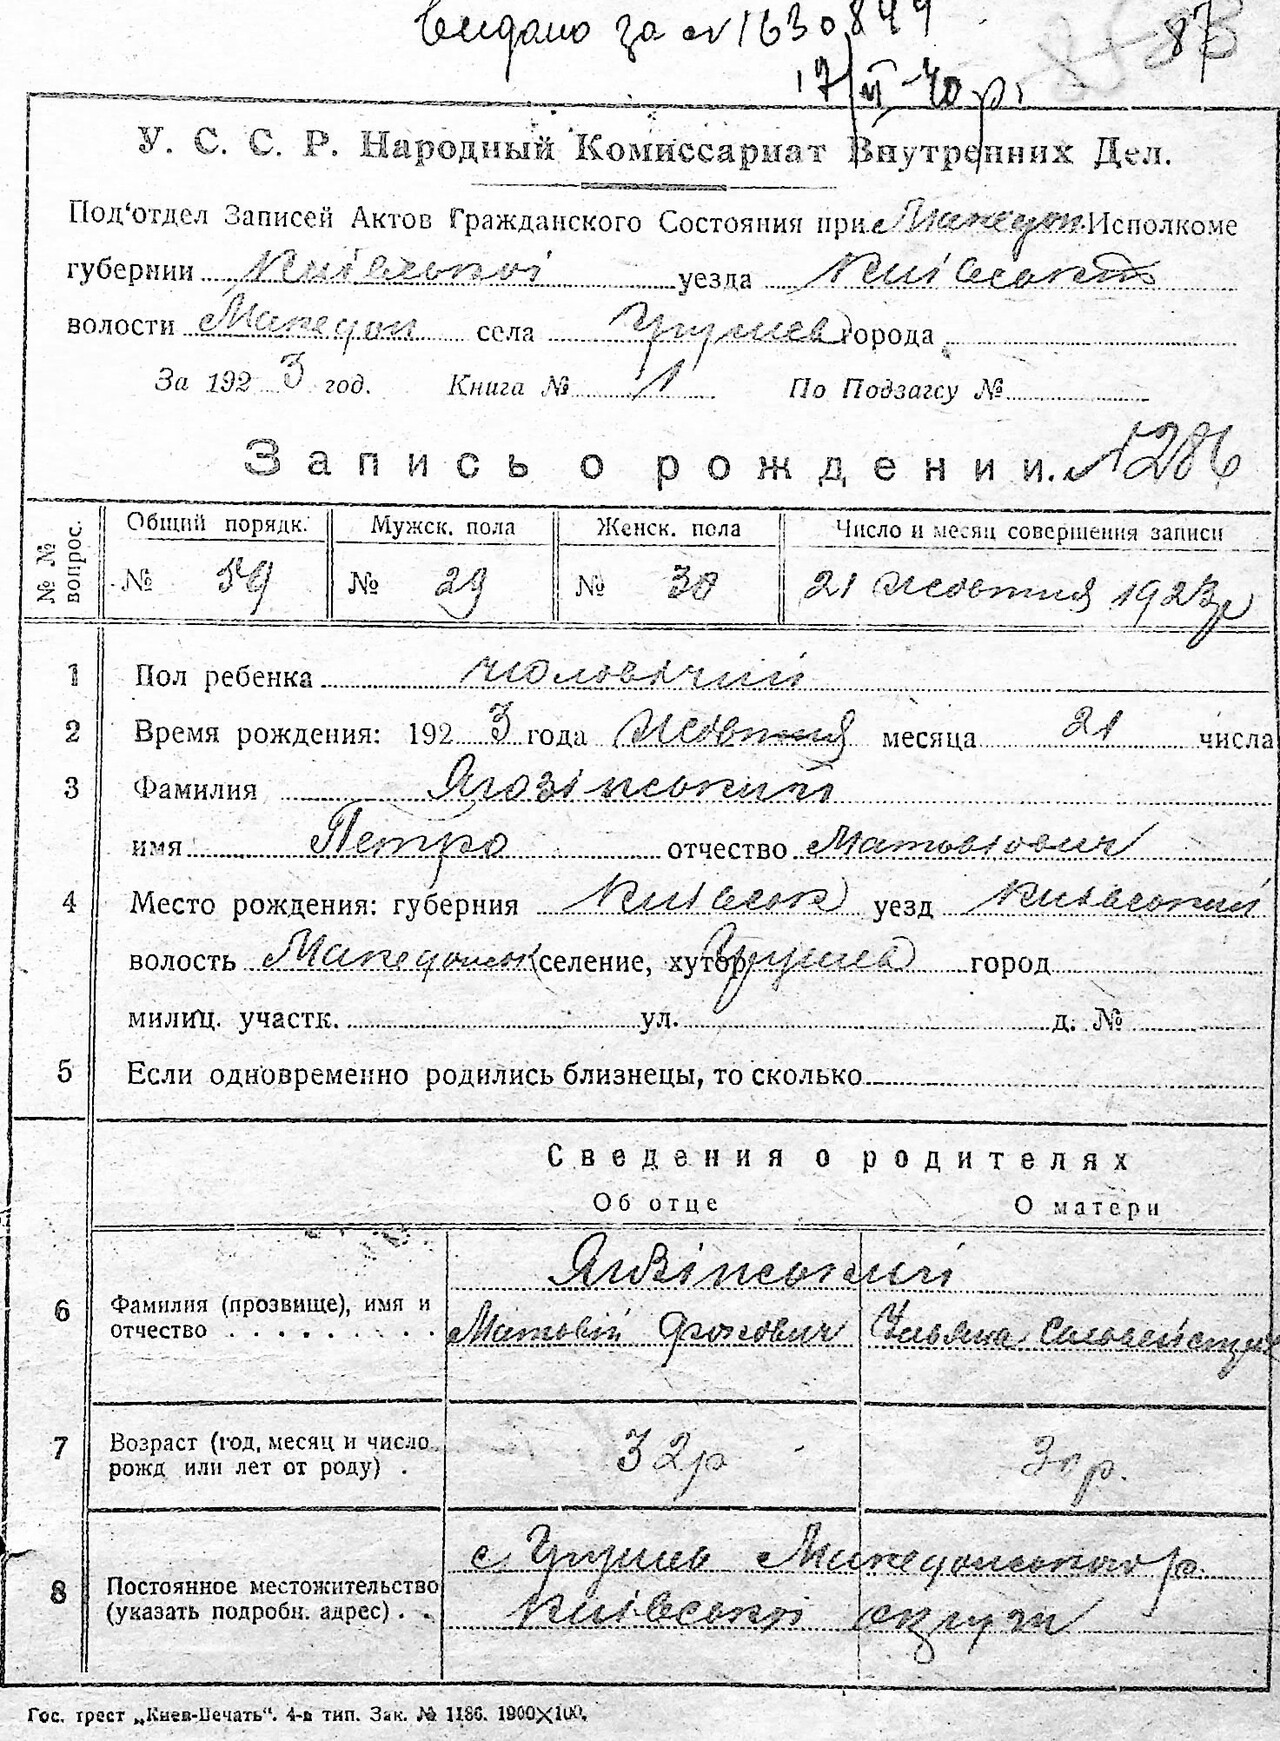 видано за № 1630849 87
17/VI-40 р.
У. С. С. Р. Народный Комиссариат Внутренних Дел.
Под'отдел Записей Актов Гражданского Состояния при Македон. Исполкоме
губернии Київської уезда Київського
волости Македон села Грушев города
За 1923 год. Книга № 1 По Подзагсу №
Запись о рождении. № 286
№ № вопрос. Общий порядк. Мужск. пола Женск. пола Число и месяц совершения записи
№ 59 № 29 № 30 21 Жовтня 1923 р
1 Пол ребенка чоловічий
2 Время рождения: 1923 года Жовтня месяца 21 числа
3 Фамилия Ягозінський
имя Петро отчество Матвієвич
4 Место рождения: губерния Київськ уезд Київський
волость Македонск селение, хутор Грушев город
милиц. участк. ул. д. №
5 Если одновременно родились близнецы, то сколько
Сведения о родителях
Об отце О матери
6 Фамилия (прозвище), имя и отчество
Матвій Уляна
7 Возраст (год, месяц и число рожд или лет от роду) . 32 р 30 р.
8 Постоянное местожительство (указать подробн. адрес) . .
с. Грушев Македонського р.
Київської округи
Гос. трест „Киев-Печать“. 4-я тип. Зак. № 1186. 1900×100.